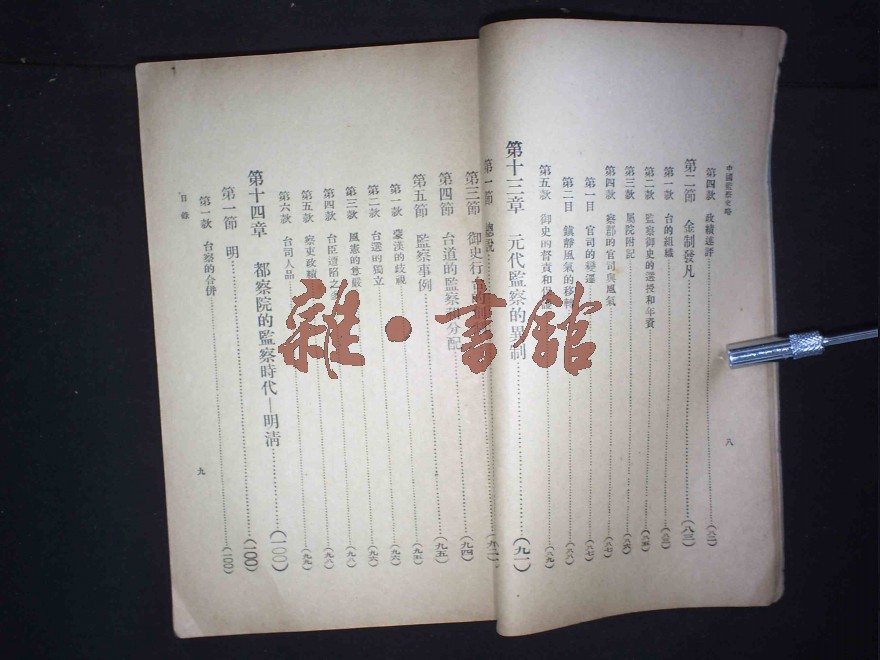 中國監察史略
第四款 政績述評
第二節 金制發凡……(八三)
第一款 台的組織
第二款 監察御史的選授和年資
第三款 屬院附記
第四款 察郡的官司與風氣
第一目 官司的變遷……(八七)
第二目 鎮靜風氣的移轉
第五款 御史的督責和……(八九)
八
第十三章 元代監察的異制……(九一)
第一節 總說
第三節 御史行台……(九四)
第四節 台道的監察 分配……(九五)
第五節 監察事例
第一款 蒙漢的歧視……(九六)
第二款 台選的獨立……(九六)
第三款 風憲的尊嚴
第四款 台臣遭陷之
第五款 察吏政
第六款 台司人品
第十四章 都察院的監察時代—明清……(一〇〇)
第一節 明……(一〇〇)
第一款 台察的合併……(一〇〇)
目錄
九
雜·書館